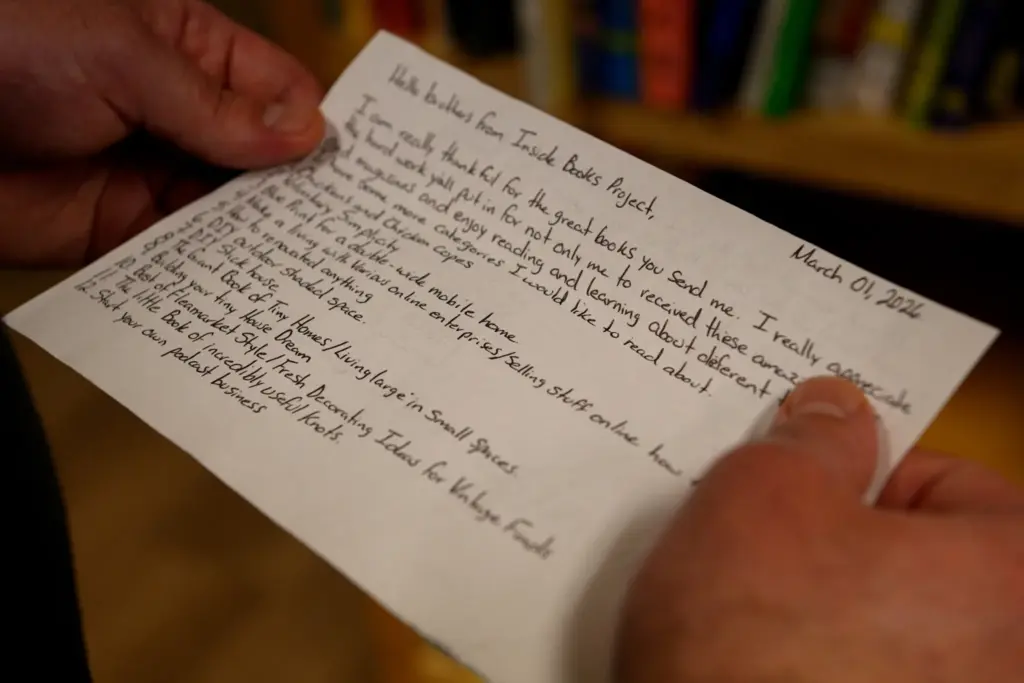 March 01, 2026
Hello brothers from Inside Books Project,
I am really thankful for the great books you send me. I really apprecate
the hard work yall put in for not only me to received these amaz
magazines and enjoy reading and learning about deferent
some more categories I would like to read about.
and Chicken copes
Simplicity
Print for a doble wide mobile home
a living with Varius online enterprises/Selling stuff online how
to renovated anything
DIY outdoor shaded space.
DIY Stick house.
The Giant Book of Tiny Homes/Living large in Small spaces.
Building your tiny House Dream
10. Best of Fleamarket Style/Fresh Decorating Ideas for Vintage Finds
11. The little Book of incredibly useful Knots.
12. Start your own podcast business